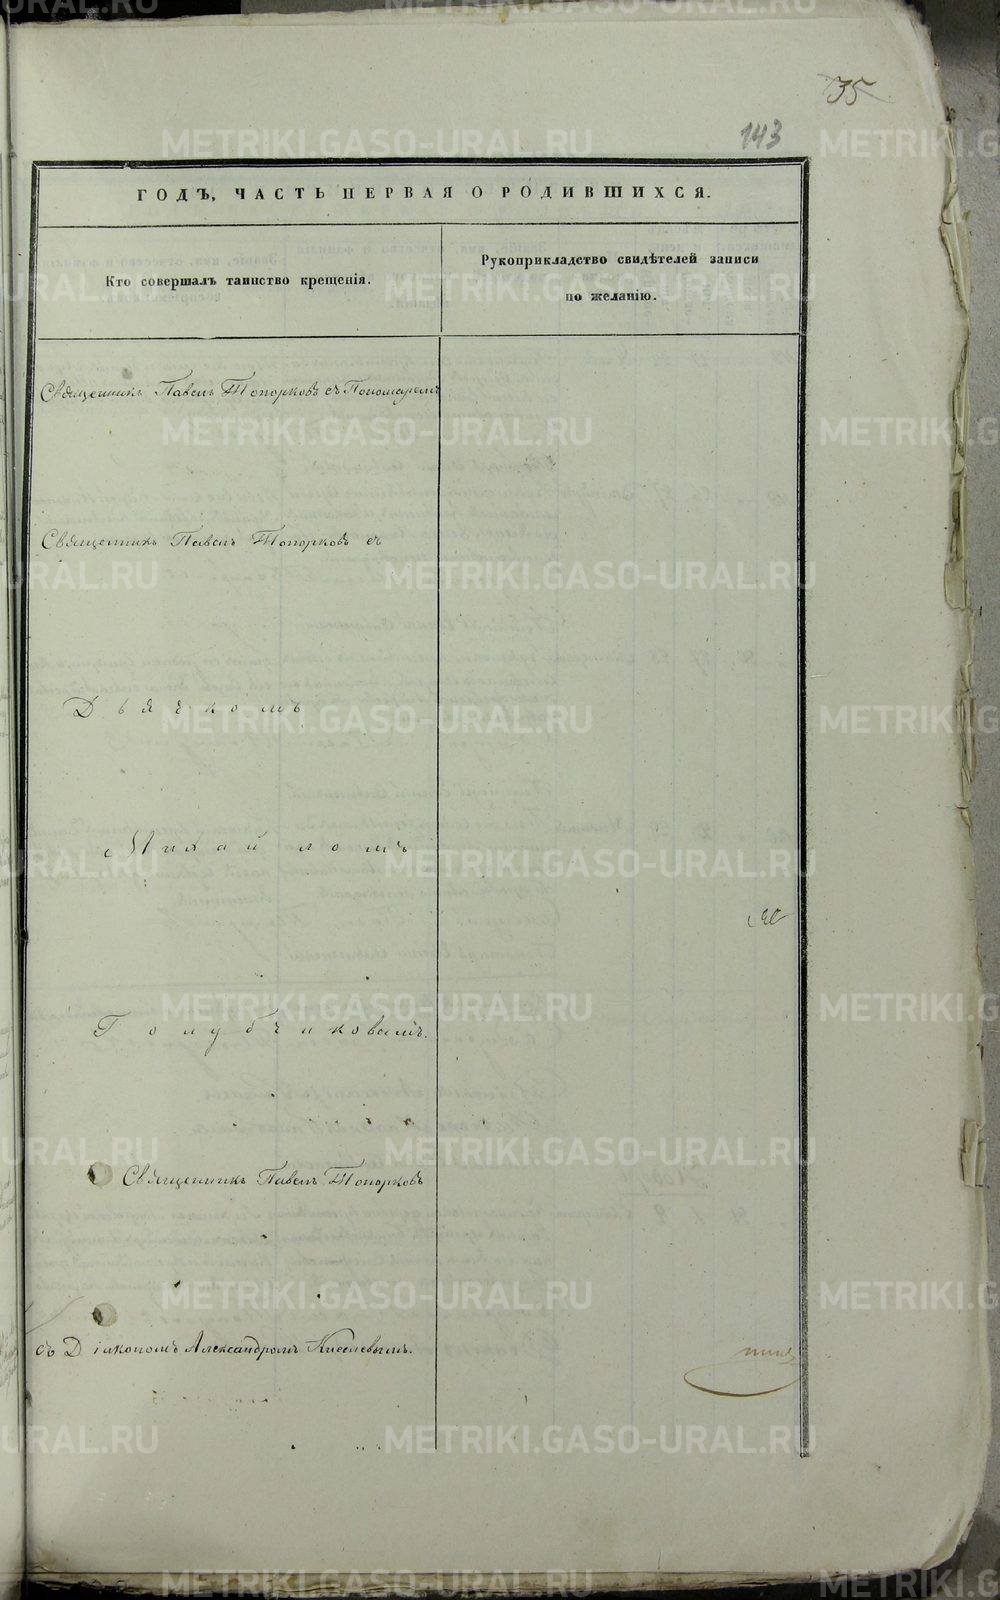 35
143
ГОДЪ, ЧАСТЬ ПЕРВАЯ О РОДИВШИХСЯ.
Кто совершалъ таинство крещенія.
Рукоприкладство свидѣтелей записи
по желанію.
Священникъ Павелъ Топорковъ съ Пономаремъ
Священникъ Павелъ Топорковъ съ
Дьячкомъ
Михайломъ
Голубчиковымъ.
Священникъ Павелъ Топорковъ
съ Діакономъ Александромъ Киселевымъ.
METRIKI.GASO-URAL.RU